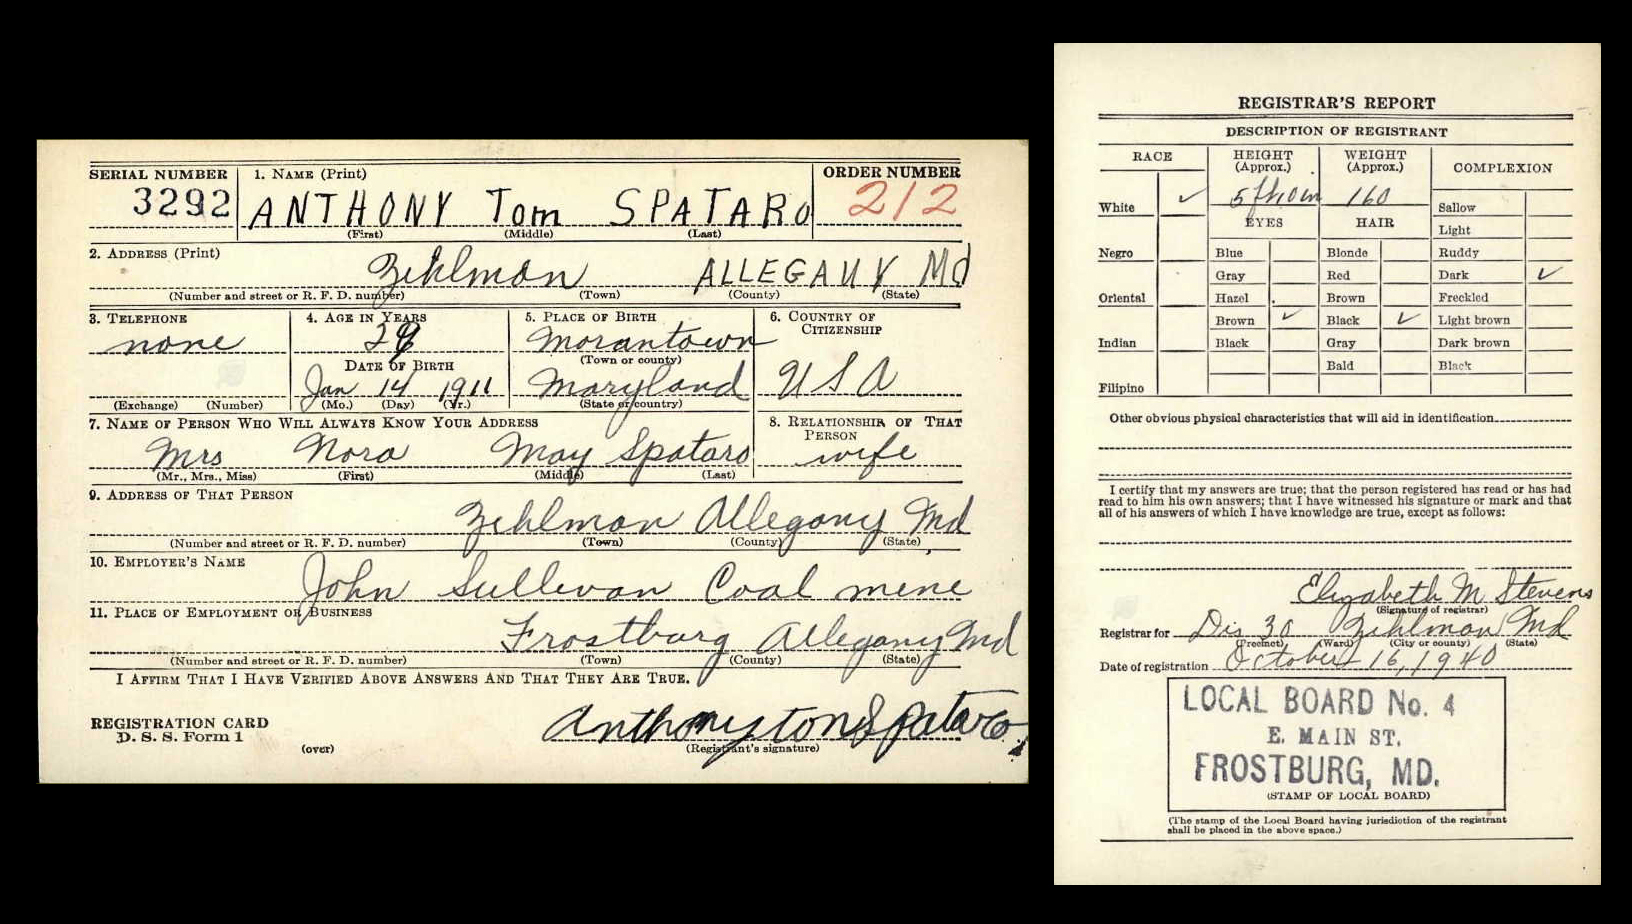 SERIAL NUMBER
3292
1. NAME (Print)
ANTHONY Tom SPATARO
(First) (Middle) (Last)
ORDER NUMBER
212
2. ADDRESS (Print)
Zihlman ALLEGANY Md
(Number and street or R. F. D. number) (Town) (County) (State)
3. TELEPHONE
none
(Exchange) (Number)
4. AGE IN YEARS
29
DATE OF BIRTH
Jan 14 1911
(Mo.) (Day) (Yr.)
5. PLACE OF BIRTH
Morantown
(Town or county)
Maryland
(State or country)
6. COUNTRY OF
CITIZENSHIP
USA
7. NAME OF PERSON WHO WILL ALWAYS KNOW YOUR ADDRESS
Mrs Nora May Spataro
(Mr., Mrs., Miss) (First) (Middle) (Last)
8. RELATIONSHIP OF THAT
PERSON
wife
9. ADDRESS OF THAT PERSON
Zihlman Allegany Md
(Number and street or R. F. D. number) (Town) (County) (State)
10. EMPLOYER'S NAME
John Sullivan Coal mine
11. PLACE OF EMPLOYMENT OR BUSINESS
Frostburg Allegany Md
(Number and street or R. F. D. number) (Town) (County) (State)
I AFFIRM THAT I HAVE VERIFIED ABOVE ANSWERS AND THAT THEY ARE TRUE.
REGISTRATION CARD
D. S. S. Form 1
(over)
Anthony tom Spataro
(Registrant's signature)
REGISTRAR'S REPORT
DESCRIPTION OF REGISTRANT
RACE
HEIGHT
(Approx.)
WEIGHT
(Approx.)
COMPLEXION
White ✓
5 ft 10 in
160
Sallow
EYES
HAIR
Light
Negro
Blue
Blonde
Ruddy
Gray
Red
Dark ✓
Oriental
Hazel
Brown
Freckled
Brown ✓
Black ✓
Light brown
Indian
Black
Gray
Dark brown
Bald
Black
Filipino
Other obvious physical characteristics that will aid in identification
I certify that my answers are true; that the person registered has read or has had
read to him his own answers; that I have witnessed his signature or mark and that
all of his answers of which I have knowledge are true, except as follows:
Elizabeth M Stevens
(Signature of registrar)
Registrar for Dis 30 Zihlman Md
(Precinct) (Ward) (City or county) (State)
Date of registration October 16, 1940
LOCAL BOARD No. 4
E. MAIN ST.
FROSTBURG, MD.
(STAMP OF LOCAL BOARD)
(The stamp of the Local Board having jurisdiction of the registrant
shall be placed in the above space.)